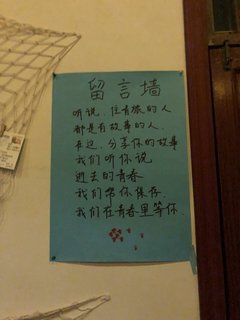 留言墙
听说，住青旅的人
都是有故事的人，
在这，分享你的故事
我们听你说
逝去的青春
我们帮你保存
我们在青春里等你．